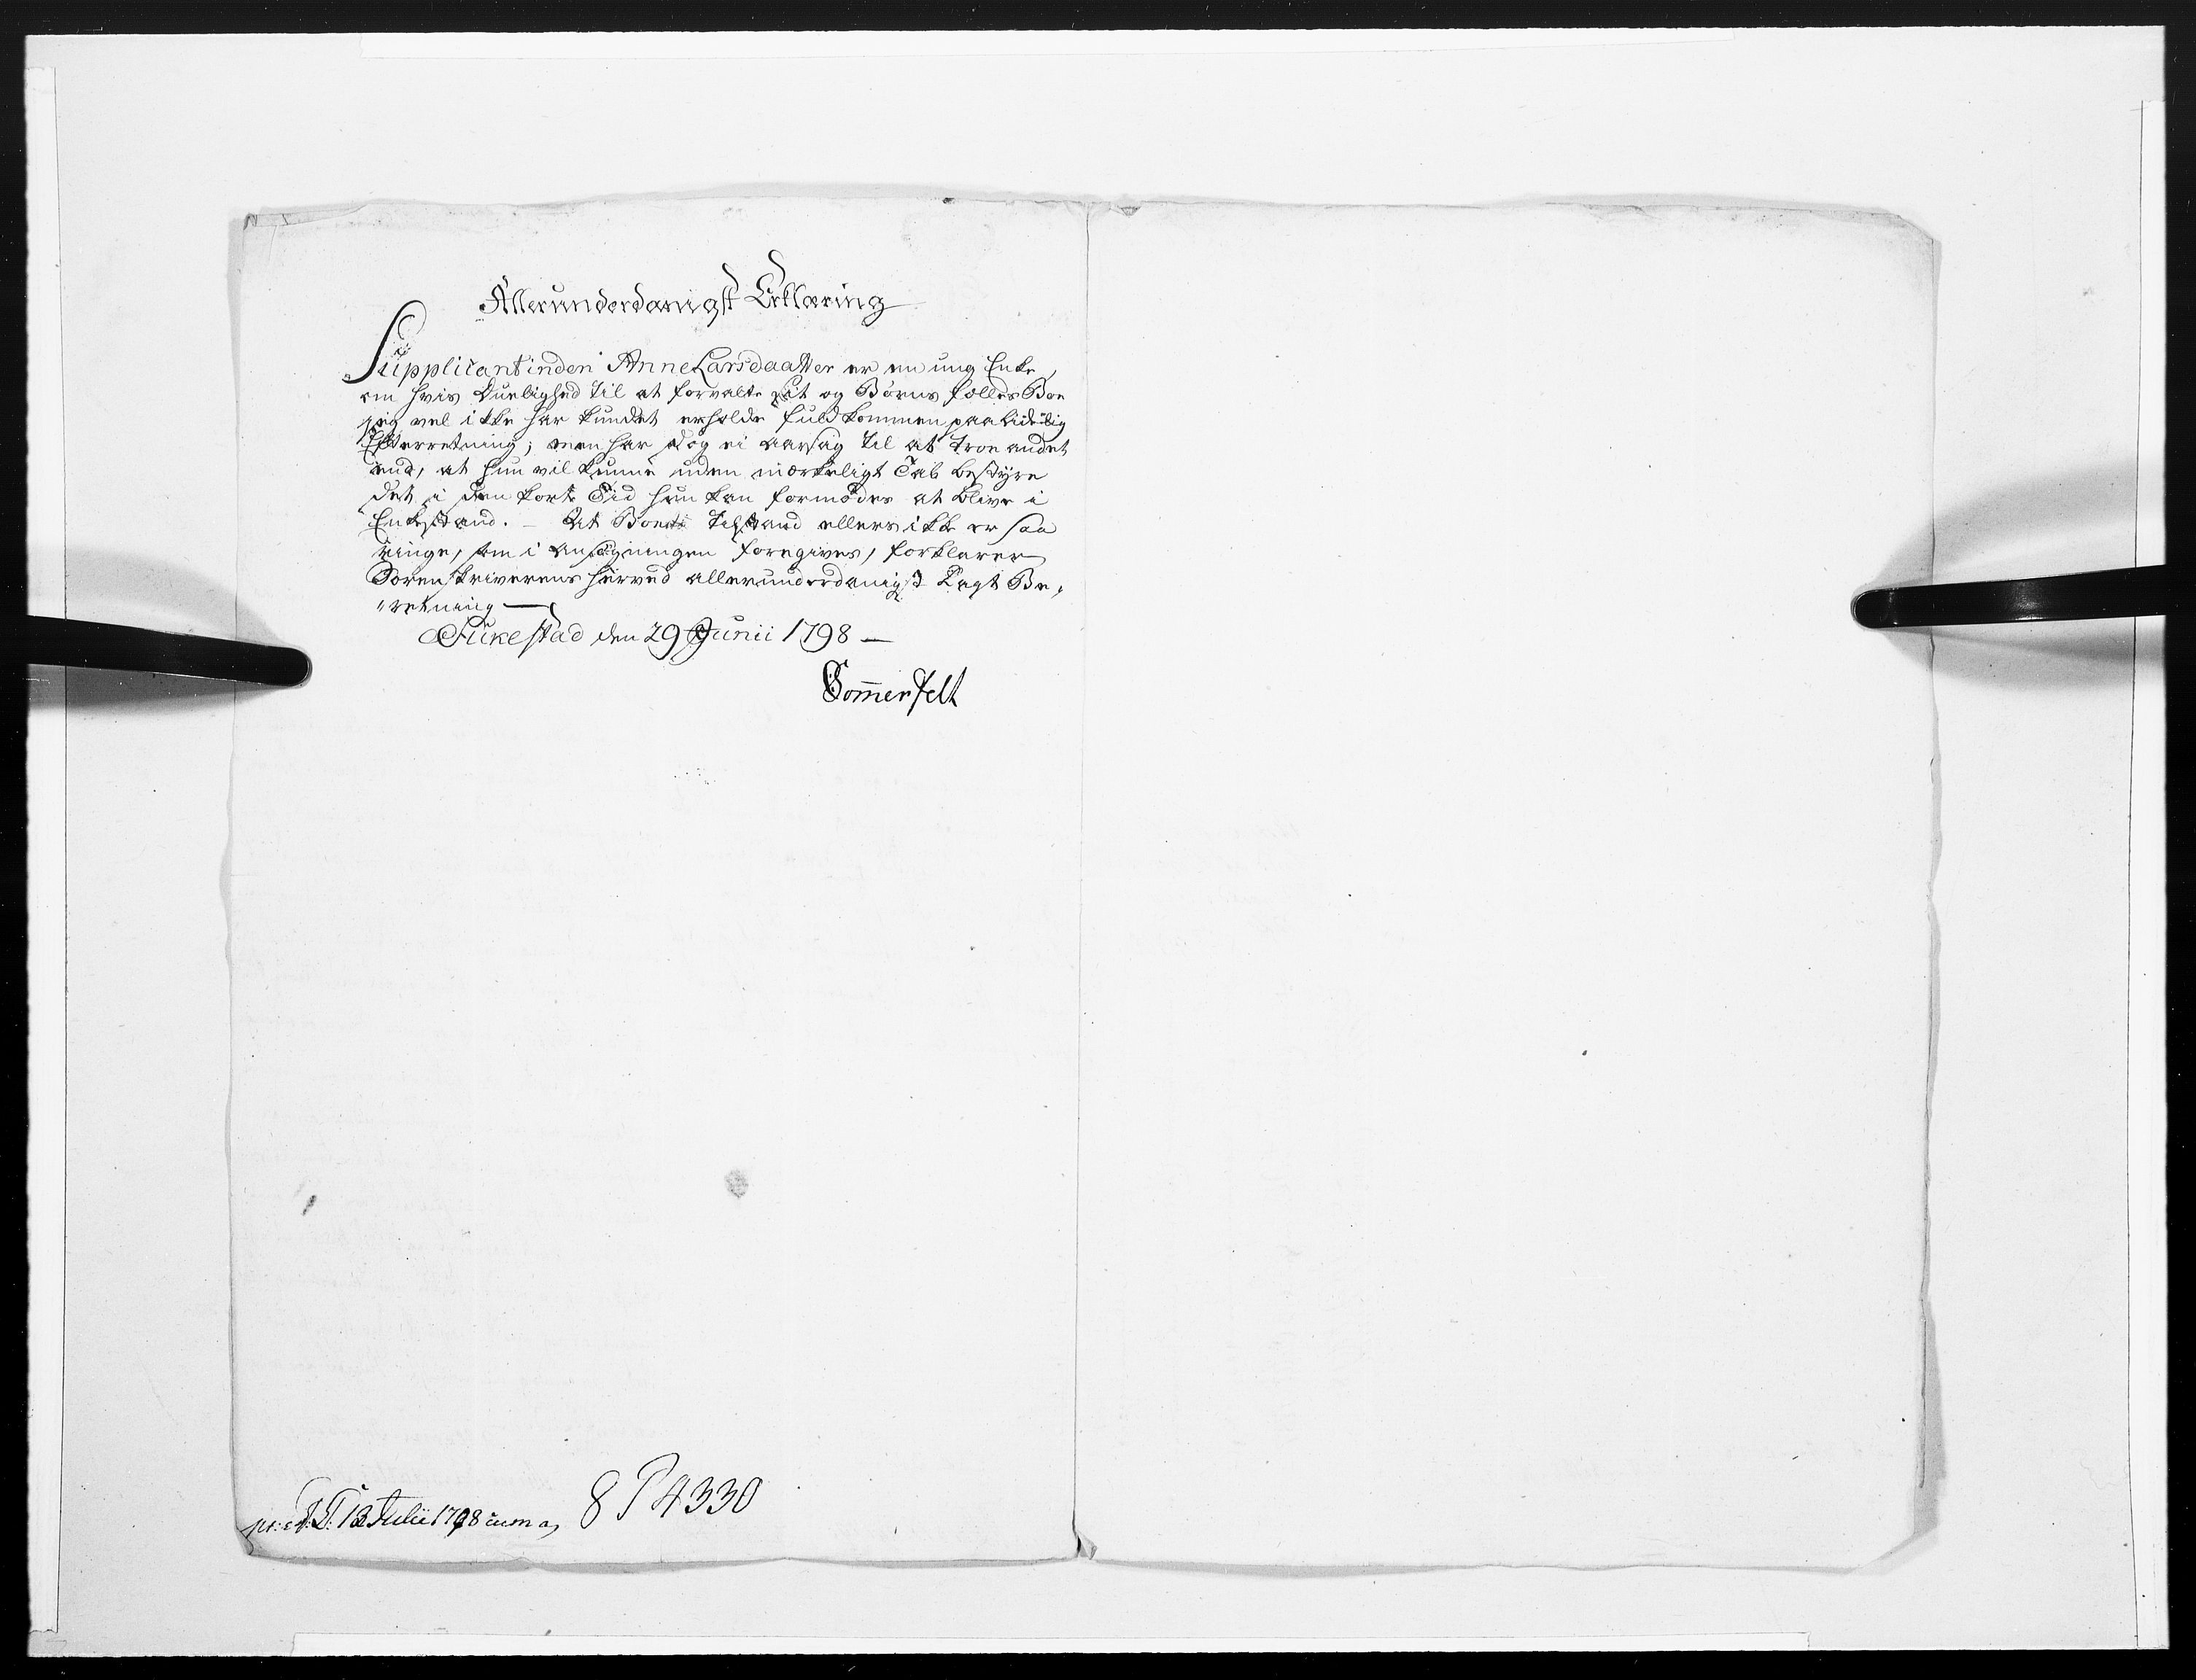 Allerunderdanigst Erklæring
Supplicantinden Anne Larsdaatter er en ung Enke,
om hvis Duelighed til at forvalte sit og Børns fælleds Boe
jeg vel ikke har kundet erholde fuldkommen paalidelig
Efterretning; men har dog ei Aarsag til at troe andet
end, at hun vil kunne uden mærkeligt Tab bestyre
det i den korte Tid hun kan formodes at blive i
Enkestand. – At Boets Tilstand ellers ikke er saa
ringe, som i Ansøgningen foregives, forklarer
Sorenskriverens hærved allerunderdanigst Lagt Be„
„retning —
Sukestad den 29 Junii 1798 —
Sommerfelt
pr: 13 Julii 1798 cum a,
8 P 4330